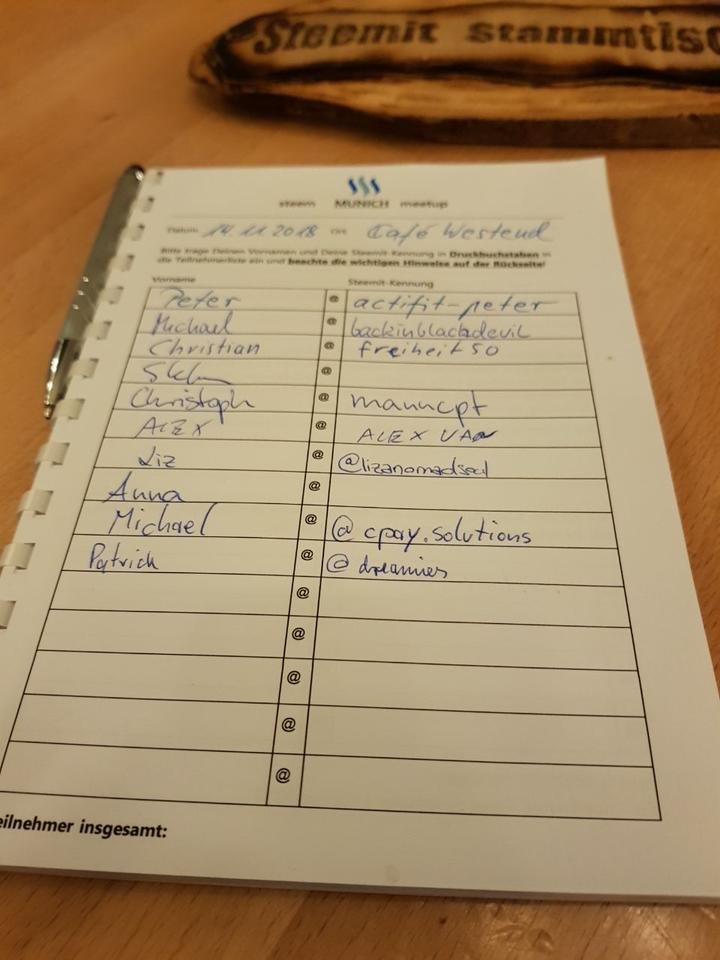 Steemit stammtisc
steem MUNICH meetup
Datum 14.11.2018 Ort Café Westend
Bitte trage Deinen Vornamen und Deine Steemit-Kennung in Druckbuchstaben in
die Teilnehmerliste ein und beachte die wichtigen Hinweise auf der Rückseite!
Vorname Steemit-Kennung
Peter @ actifit-peter
Michael @ backinblackdevil
Christian @ freiheit50
@
Christoph @ manncpt
ALEX @ ALEX
Liz @ @lizanomadsoul
Anna @
Michael @ @cpay.solutions
Patrick @ @dreamies
@
@
@
@
@
eilnehmer insgesamt: